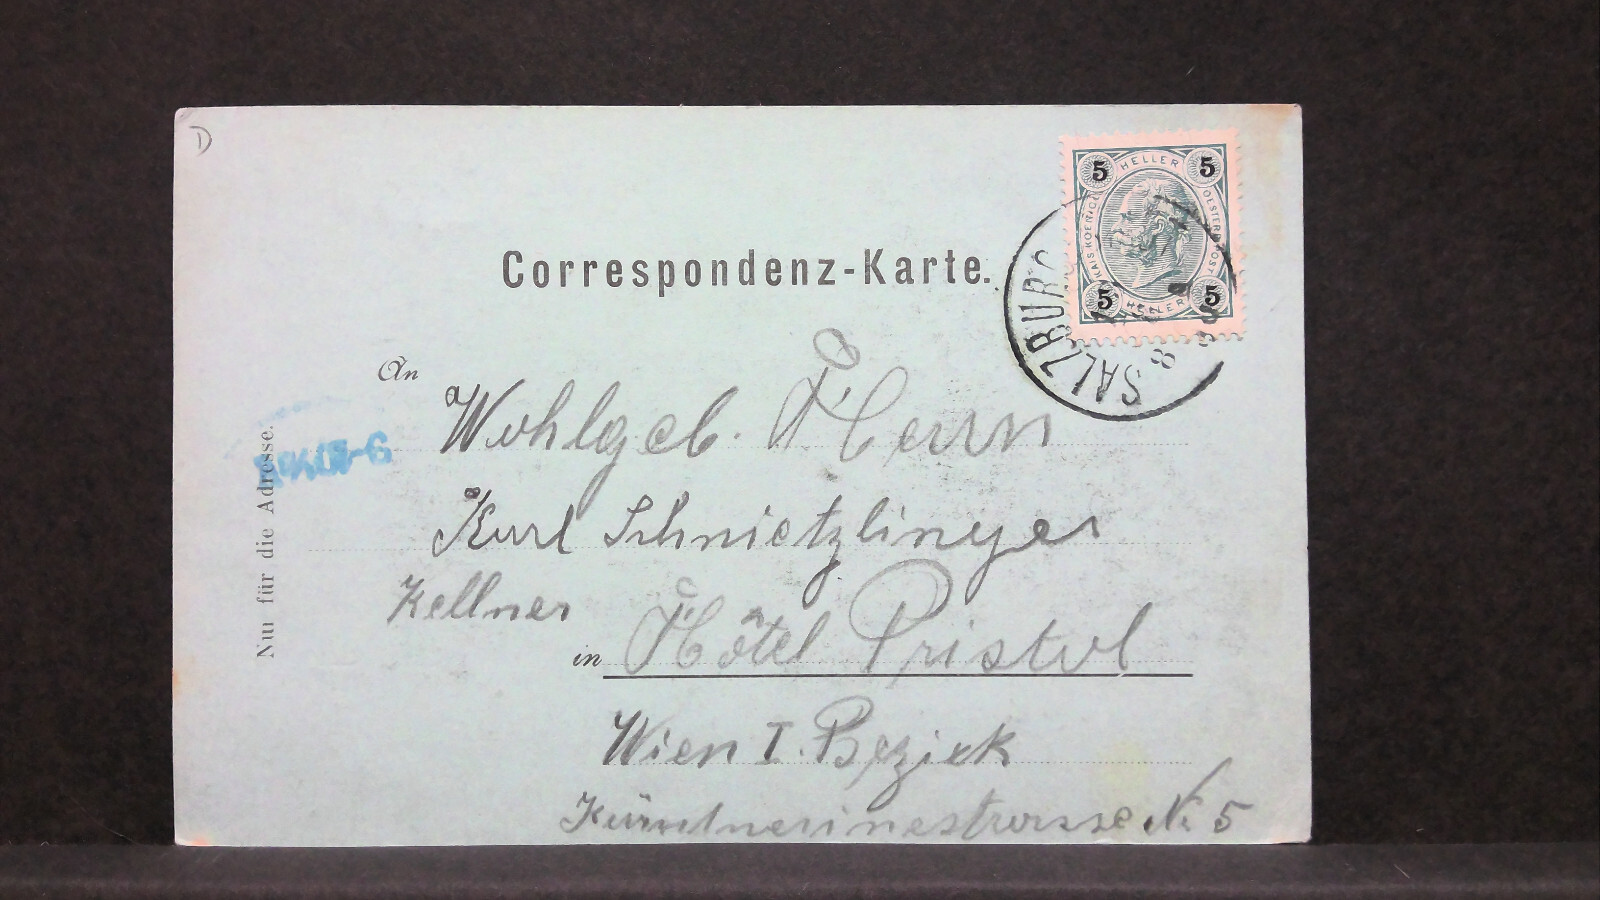 D
5 HELLER 5
KAIS. KOENIGL. OESTERR. POST
5 HELLER 5
SALZBURG
Correspondenz-Karte.
An
Wohlgeb. Herrn
Karl Schnietzlinger
Kellner
in Hôtel Pristol
Wien I. Bezirk
Nr. 5
Nur für die Adresse.